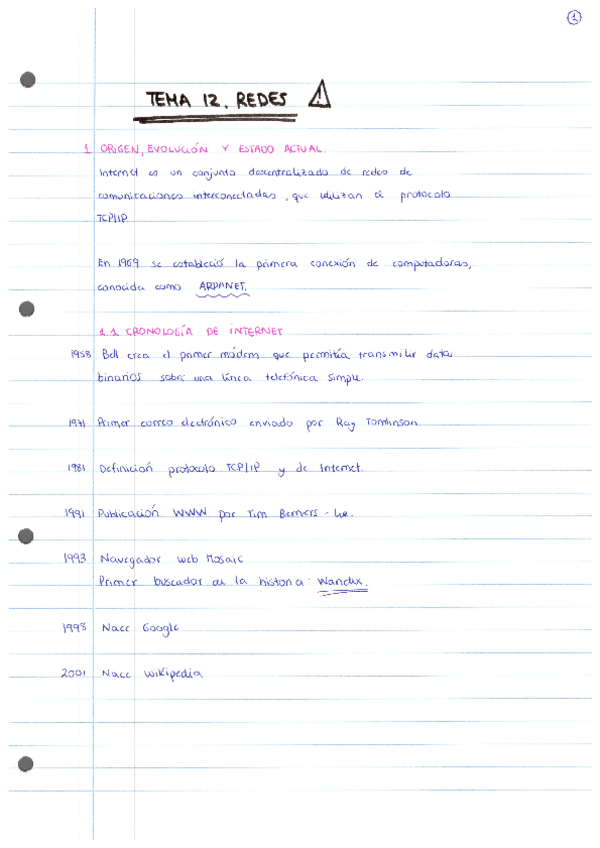 1
TEMA 12. REDES
1 ORIGEN, EVOLUCIÓN Y ESTADO ACTUAL.
Internet es un conjunto descentralizado de redes de
comunicaciones interconectadas, que utilizan el protocolo
TCP/IP
En 1969 se estableció la primera conexión de computadoras,
conocida como ARPANET.
1.1 CRONOLOGÍA DE INTERNET
1958 Bell crea el primer módem que permitía transmitir datos
binarios sobre una línea telefónica simple.
1971 Primer correo electrónico enviado por Ray Tomlinson.
1981 Definición protocolo TCP/IP y de Internet.
1991 Publicación WWW por Tim Berners-Lee.
1993 Navegador web Mosaic
Primer buscador de la historia: Wandex.
1998 Nace Google
2001 Nace Wikipedia